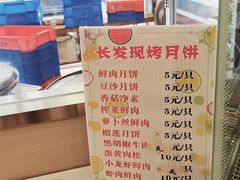 长发现烤月饼
鲜肉月饼 5元/只
豆沙月饼 5元/只
香菇净素 5元/只
榨菜鲜肉 5元/只
萝卜丝鲜肉 5元/只
榴莲月饼 5元/只
黑胡椒牛肉 元/只
蛋黄肉松 10元/只
小龙虾鲜肉 元/只
虾肉鲜肉 10元/只